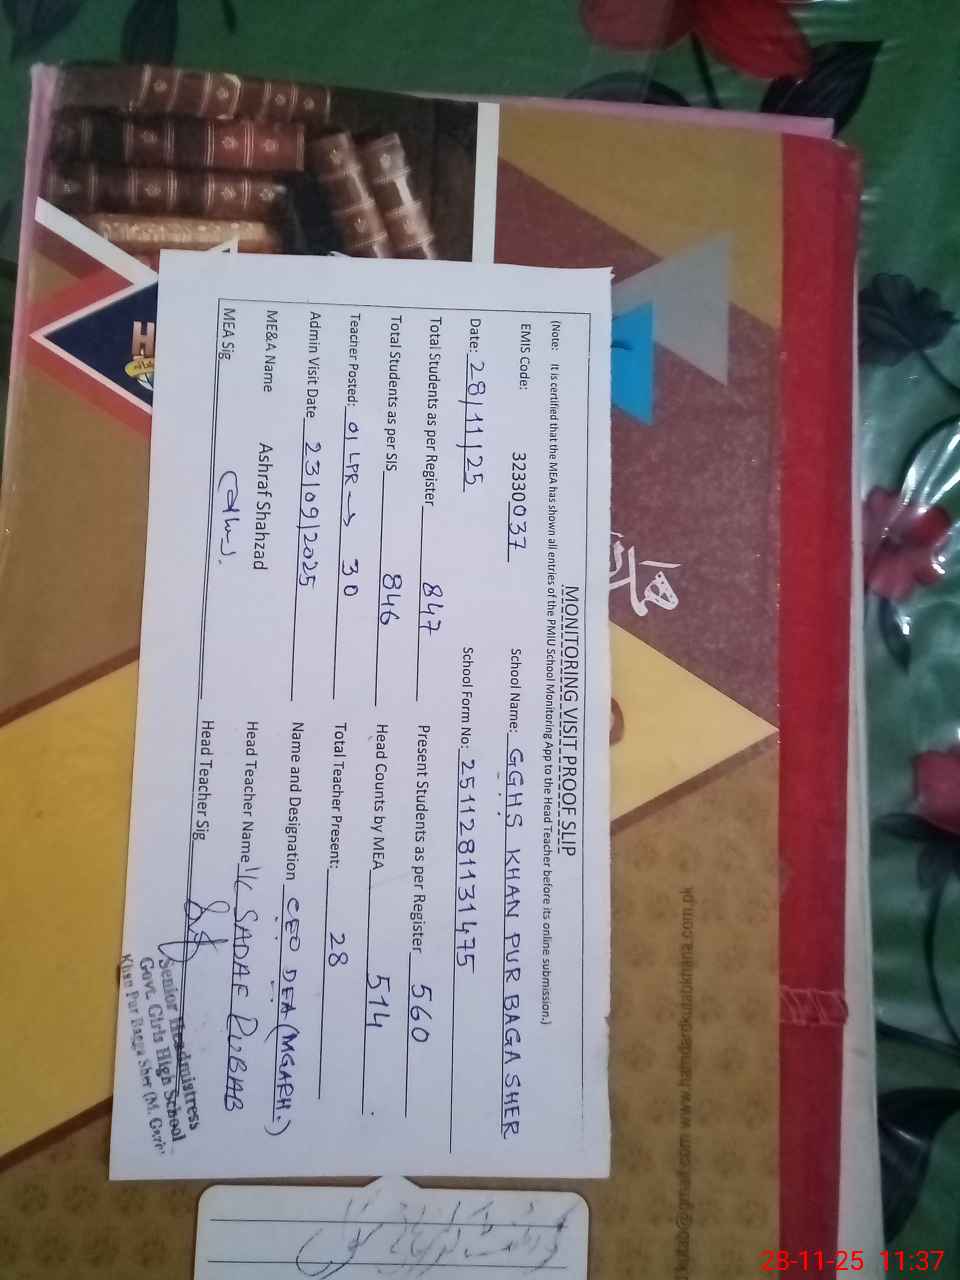 MONITORING VISIT PROOF SLIP
(Note: It is certified that the MEA has shown all entries of the PMIU School Monitoring App to the Head Teacher before its online submission.)
EMIS Code: 32330037 School Name: GGHS KHAN PUR BAGA SHER
Date: 28/11/25 School Form No: 2511281131475
Total Students as per Register 847 Present Students as per Register 560
Total Students as per SIS 846 Head Counts by MEA 514
Teacher Posted: 01 LPR → 30 Total Teacher Present: 28
Admin Visit Date 23/09/2025 Name and Designation CEO DEA (MGARH.)
ME&A Name Ashraf Shahzad Head Teacher Name I/C SADAF RUBAB
MEA Sig Head Teacher Sig
Senior Headmistress
Govt. Girls High School
Khan Pur Bagga Sher (M. Garh)
28-11-25 11:37